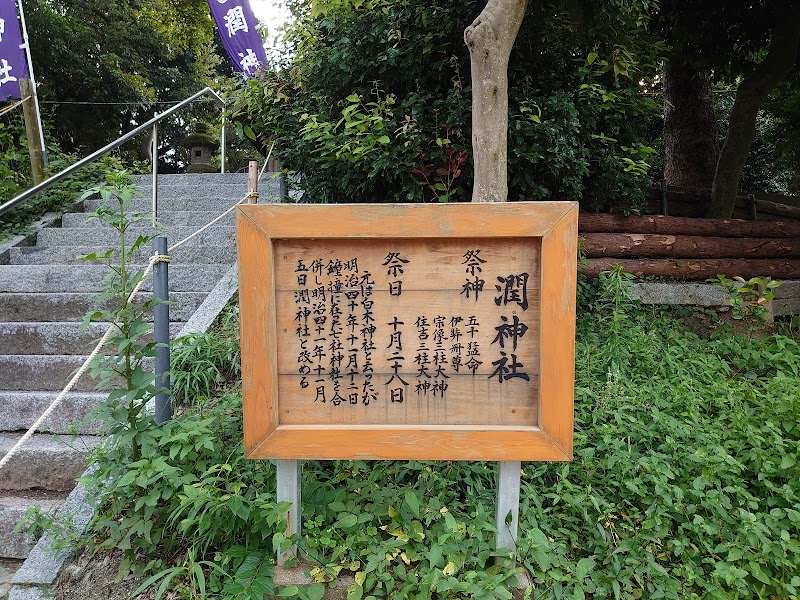 潤神社
祭神
五十猛命
伊弉冊尊
宗像三柱大神
住吉三柱大神
祭日 十月二十八日
元は白木神社と云ったが
明治四十年十一月十二日
鐘撞に在った二社神社を合
併し明治四十一年十一月
五日潤神社と改める
神社
潤神